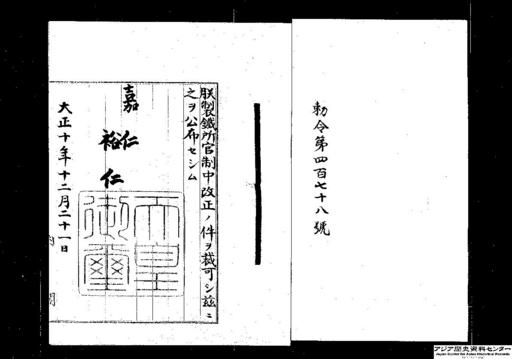 勅令第四百七十八號
朕製鐵所官制中改正ノ件ヲ裁可シ茲ニ
之ヲ公布セシム
嘉仁
裕仁
天皇
御璽
大正十年十二月二十一日
内閣
アジア歴史資料センター
Japan Center for Asian Historical Records